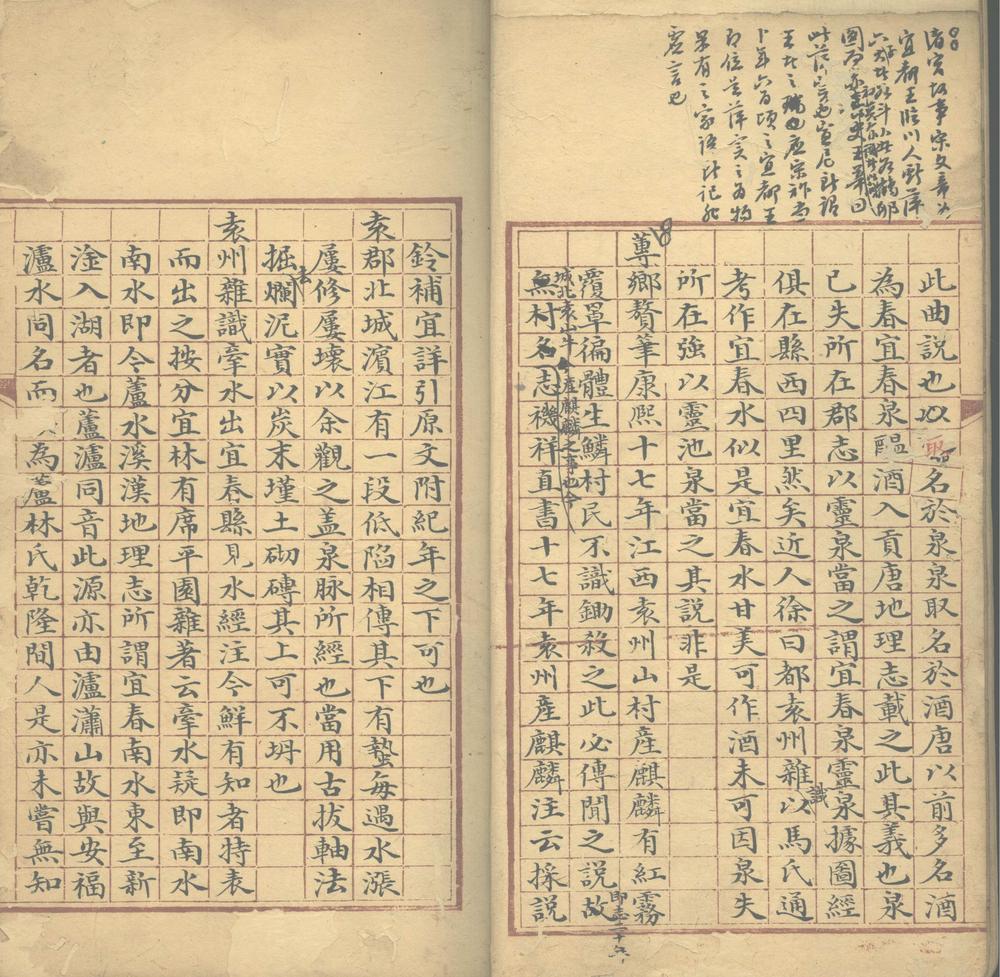 宜都王臨川人獻萍
此萍實也宣尼所謂
王者之瑞也應宗祚當
卜年六百頃之宜都王
即位是萍實之為物
果有之家語所記非
虛言也
此曲說也以名於泉泉取名於酒唐以前多名酒
為春宜春泉醞酒入貢唐地理志載之此其義也泉
已失所在郡志以靈泉當之謂宜春泉靈泉據圖經
俱在縣西四里然矣近人徐曰都袁州雜識以馬氏通
考作宜春水似是宜春水甘美可作酒未可因泉失
所在強以靈池泉當之其說非是
蓴鄉贅筆康熙十七年江西袁州山村產麒麟有紅霧
覆罩徧體生鱗村民不識鋤殺之此必傳聞之說故
城北袁山牛產麒麟之事也今
無村名志禨祥直書十七年袁州產麒麟注云採說
鈴補宜詳引原文附紀年之下可也
袁郡北城濱江有一段低陷相傳其下有蟄每遇水漲
屢修屢壞以余觀之蓋泉脉所經也當用古拔軸法
掘去爛泥實以炭末墐土砌磚其上可不坍也
袁州雜識牽水出宜春縣見水經注今鮮有知者特表
而出之按分宜林有席平園雜著云牽水疑即南水
南水即今蘆水溪漢地理志所謂宜春南水東至新
淦入湖者也蘆瀘同音此源亦由瀘瀟山故與安福
瀘水同名而為蘆林氏乾隆間人是亦未嘗無知